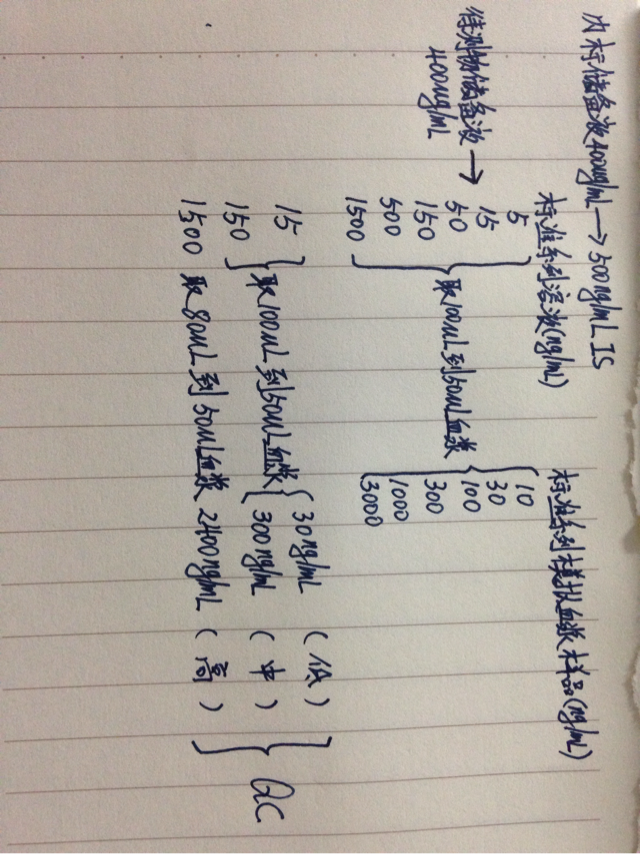 内标储备液400ug/mL → 500ng/mL IS
标准系列溶液(ng/mL) 标准系列模拟血浆样品(ng/mL)
待测物储备液 →
400ug/mL
5 10
15 30
50 取100uL到50uL血浆 100
150 300
500 1000
1500 3000
15 取100uL到50uL血浆 30ng/mL (低)
150 300ng/mL (中) QC
1500 取80uL到50uL血浆 2400ng/mL (高)